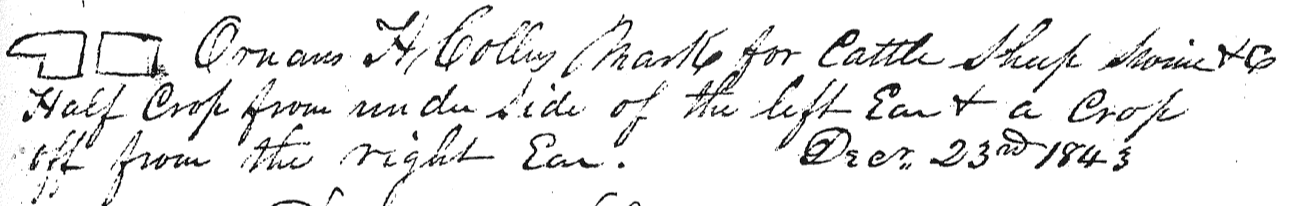 Ornans H, Collins Mark for Cattle Sheep Swine & C
Half Crop from under side of the left Ear & a Crop
off from the right Ear. Decr. 23rd 1843